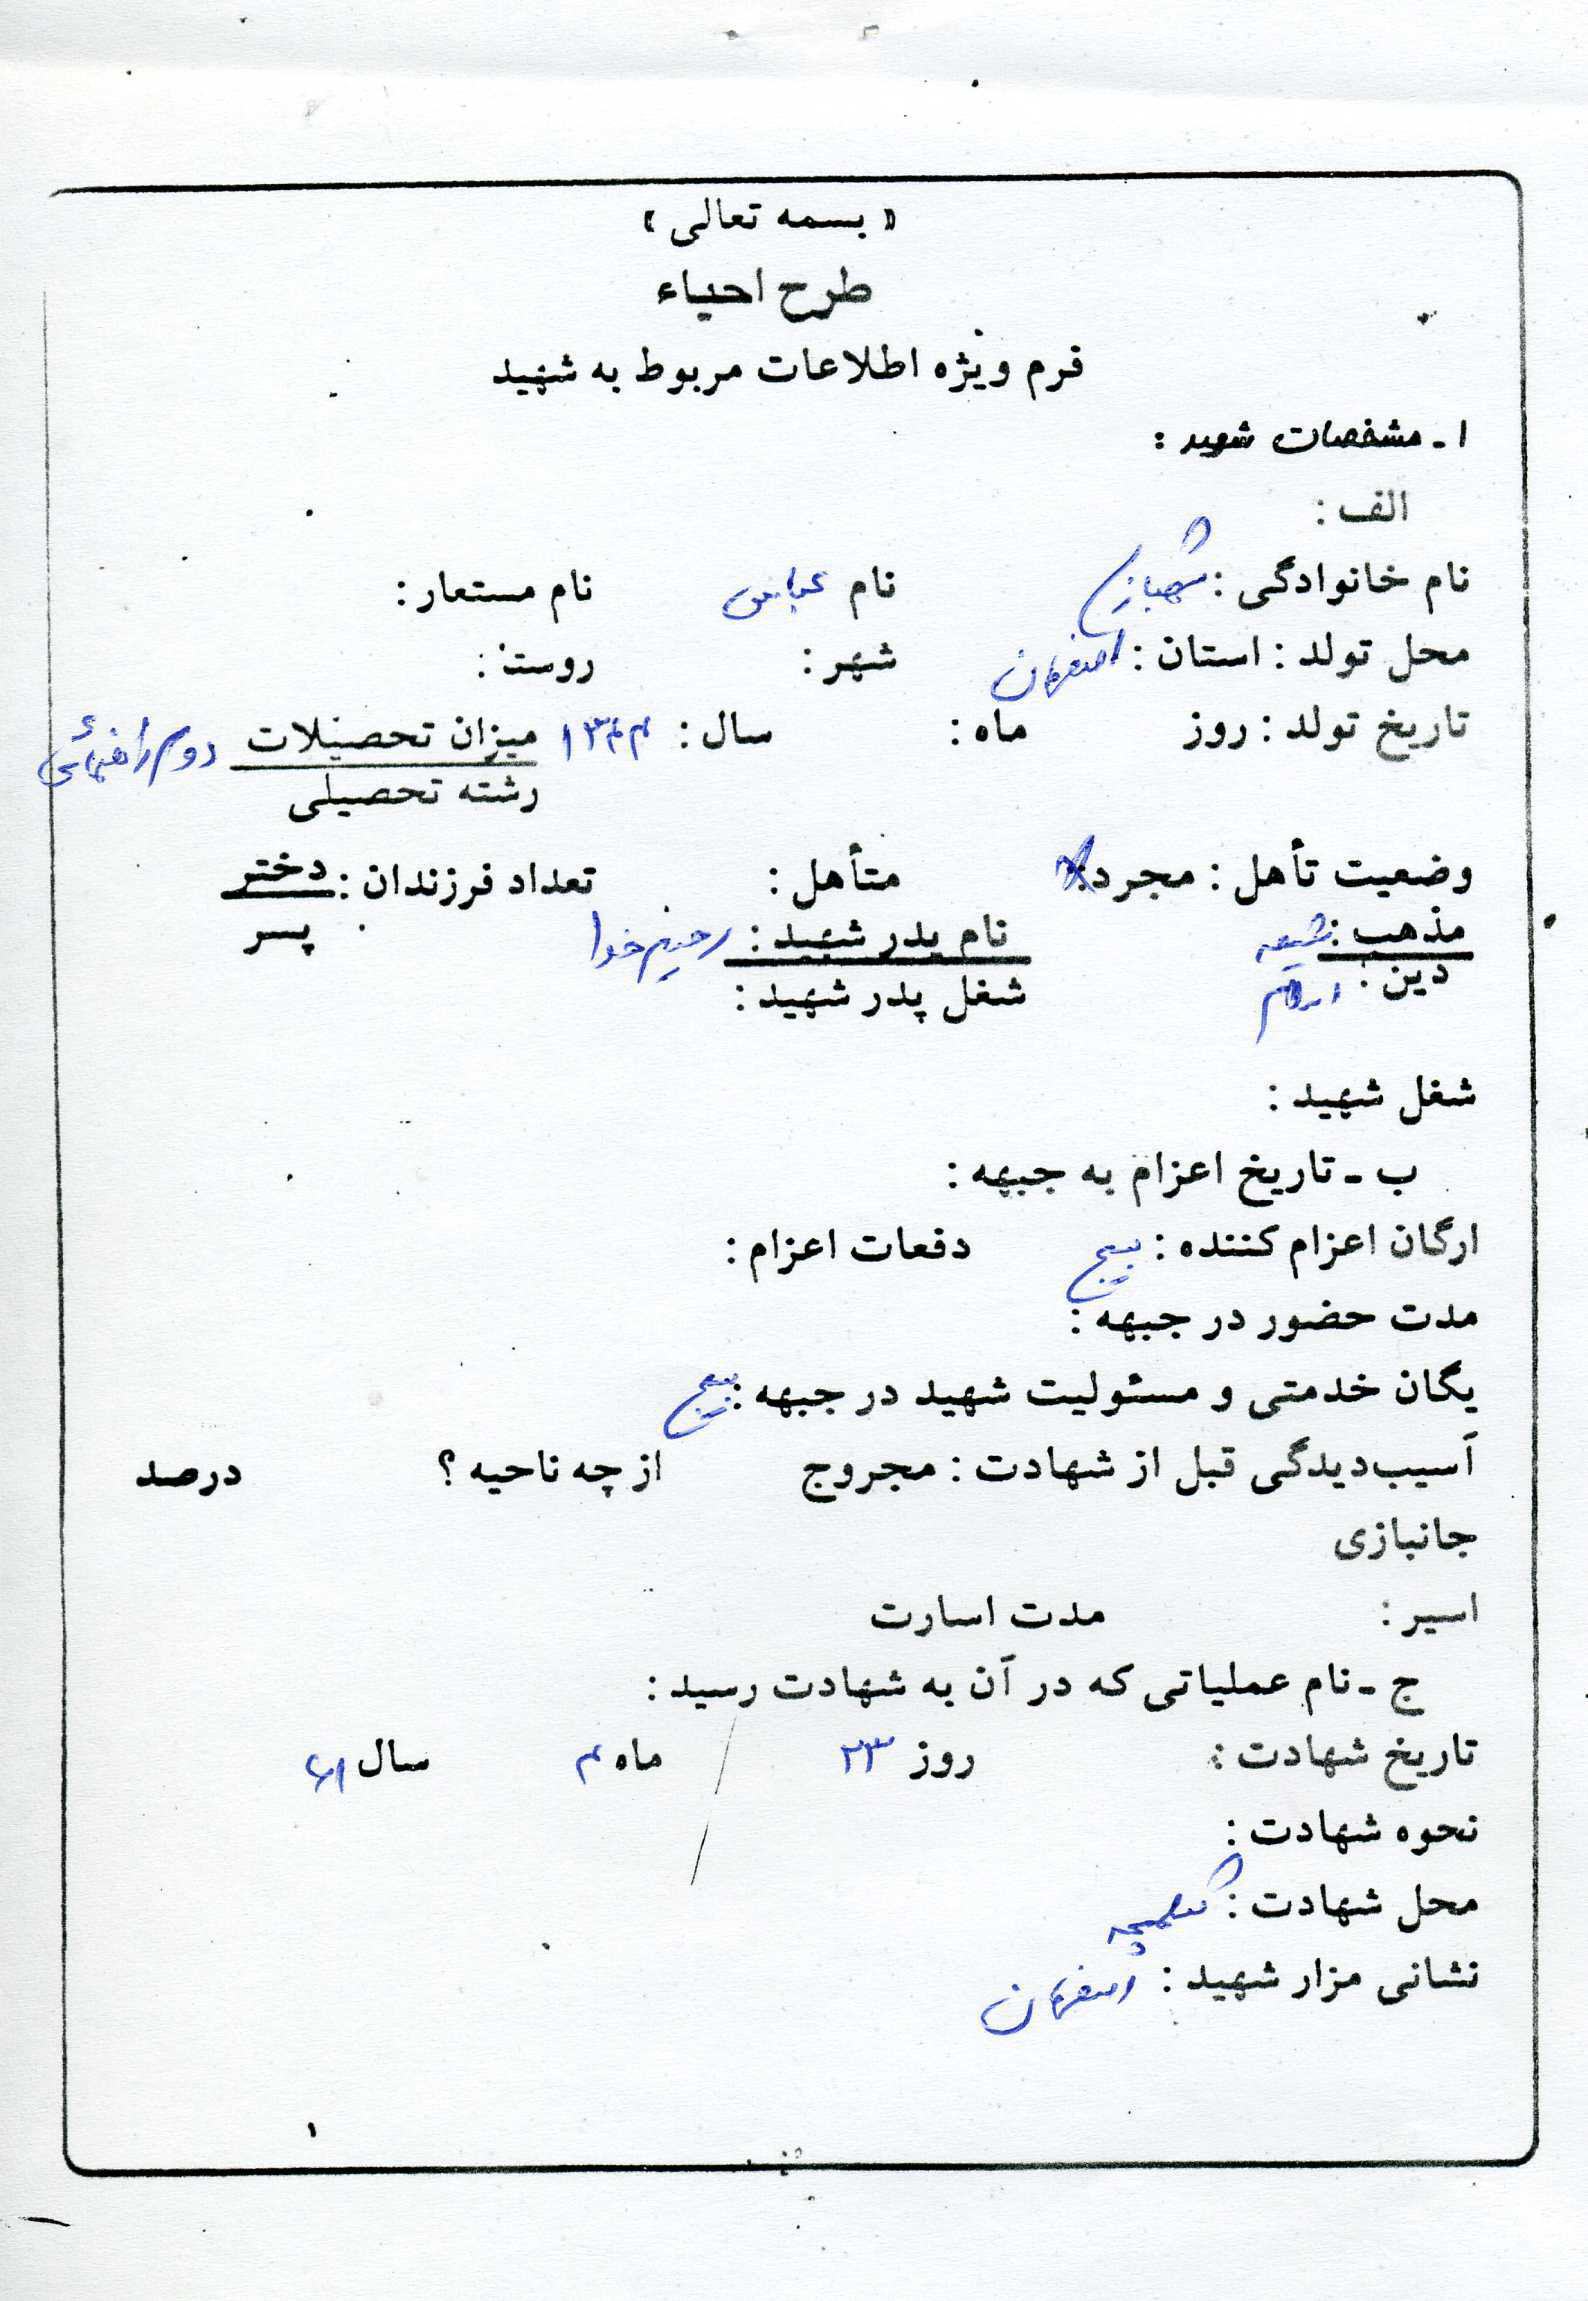 « بسمه تعالی »
طرح احیاء
فرم ویژه اطلاعات مربوط به شهید
۱ ـ مشخصات شهید :
الف :
نام خانوادگی : شهبازی نام عباس نام مستعار :
محل تولد : استان : اصفهان شهر : روستا :
تاریخ تولد : روز ماه : سال : ۱۳۴۴ میزان تحصیلات دوم راهنمائی
رشته تحصیلی
وضعیت تأهل : مجرد : متأهل : تعداد فرزندان : دختر
پسر
مذهب : شیعه نام پدر شهید : رحیم خدا
دین : اسلام شغل پدر شهید :
شغل شهید :
ب ـ تاریخ اعزام به جبهه :
ارگان اعزام کننده : بسیج دفعات اعزام :
مدت حضور در جبهه :
یگان خدمتی و مسئولیت شهید در جبهه : بسیج
آسیب‌دیدگی قبل از شهادت : مجروح از چه ناحیه ؟ درصد
جانبازی
اسیر : مدت اسارت
ج ـ نام عملیاتی که در آن به شهادت رسید :
تاریخ شهادت : روز ۲۳ ماه ۴ سال ۶۱
نحوه شهادت :
محل شهادت : شلمچه
نشانی مزار شهید : اصفهان
۱